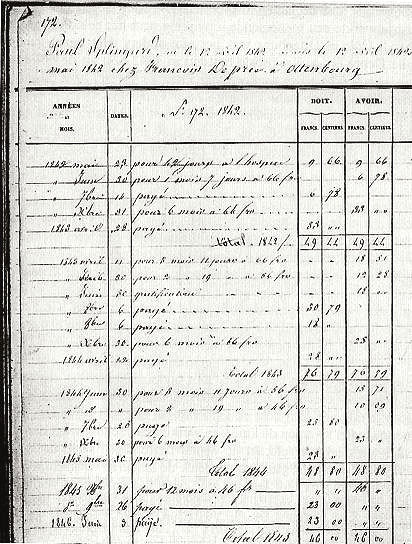 172.
Paul Splingard, né le 1er avril 1842 le 1er avril 1842
mai 1842 chez François Depré à Ottenbourg
ANNÉES
et
MOIS.
DATES.
N° 172. 1842.
DOIT.
AVOIR.
FRANCS. CENTIMES
FRANCS. CENTIMES.
1842 mai 23 pour 42 jours à l'hospice 9 66 9 66
" Juin 30 pour 1 mois 7 jours à 66 frs 6 78
" 7bre 14 payé 6 78
" Xbre 31 pour 6 mois à 66 frs 33 " "
1843 28 payé 33 " "
Total 1842 f. 49 44 49 44
1843 avril 11 pour 3 mois 11 jours à 66 frs 18 51
" 30 pour 2 " 19 " à 56 frs 12 28
" Juin 30 gratification 18 " "
" 7bre 6 payé 30 79
" 9bre 6 payé 18 "
" Xbre 30 pour 6 mois à 56 frs 28 " "
1844 avril 12 payé 28 " "
Total 1843 76 79 76 79
1844 Juin 30 pour 3 mois 11 jours à 56 frs 15 71
" " pour 2 " 19 " à 46 frs 10 09
" 7bre 26 payé 25 80
" Xbre 30 pour 6 mois à 46 frs 23 "
1845 mai 30 payé 23 "
Total 1844 48 80 48 80
1845 Xbre 31 pour 12 mois à 46 frs " " 46 "
9bre 26 payé 23 00 " "
1846 Juin 3 payé 23 00 " "
Total 1845 46 00 46 00